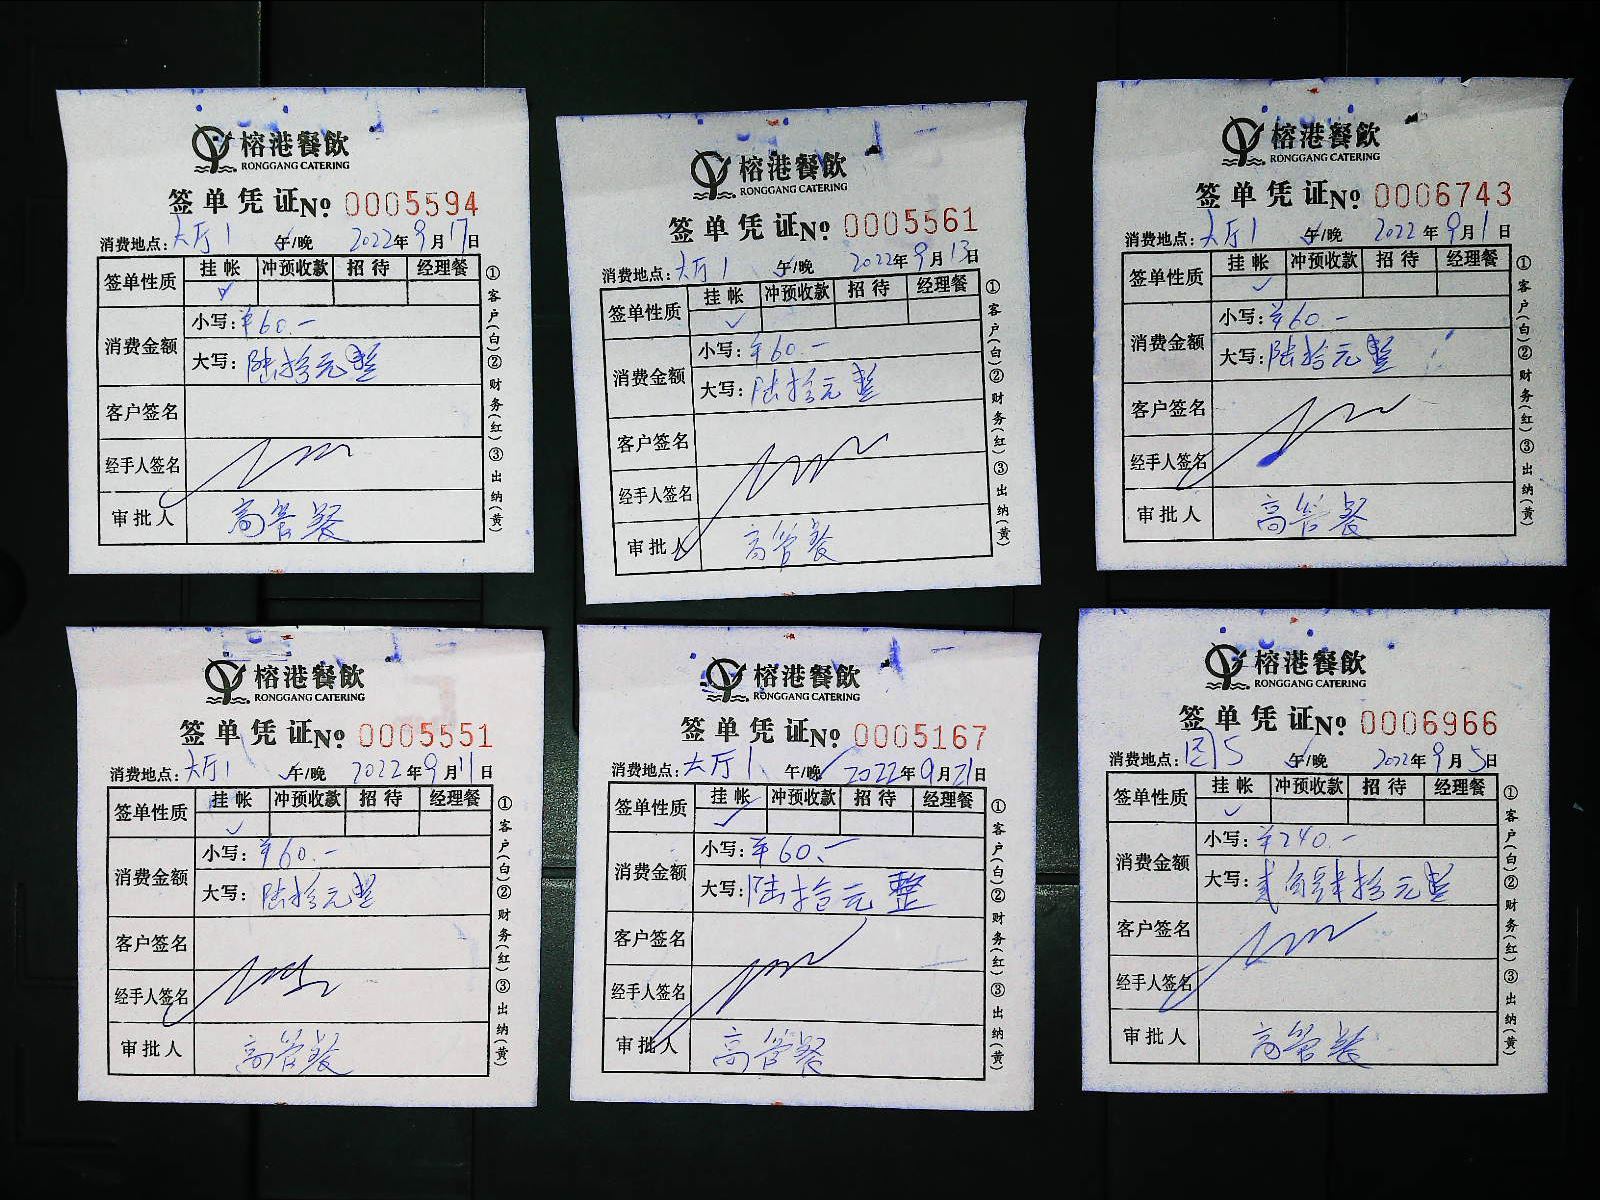 榕港餐飲
RONGGANG CATERING
签单凭证No 0005594
消费地点:大厅1 午/晚 2022年9月17日
签单性质 挂帐 冲预收款 招待 经理餐
✓
消费金额
小写:¥60.-
大写:陆拾元整
客户签名
经手人签名
审批人 高管餐
①客户(白)②财务(红)③出纳(黄)
榕港餐飲
RONGGANG CATERING
签单凭证No 0005561
消费地点:大厅1 午/晚 2022年9月13日
签单性质 挂帐 冲预收款 招待 经理餐
✓
消费金额
小写:¥60.-
大写:陆拾元整
客户签名
经手人签名
审批人 高管餐
①客户(白)②财务(红)③出纳(黄)
榕港餐飲
RONGGANG CATERING
签单凭证No 0006743
消费地点:大厅1 午/晚 2022年9月1日
签单性质 挂帐 冲预收款 招待 经理餐
✓
消费金额
小写:¥60.-
大写:陆拾元整
客户签名
经手人签名
审批人 高管餐
①客户(白)②财务(红)③出纳(黄)
榕港餐飲
RONGGANG CATERING
签单凭证No 0005551
消费地点:大厅1 午/晚 2022年9月11日
签单性质 挂帐 冲预收款 招待 经理餐
✓
消费金额
小写:¥60.-
大写:陆拾元整
客户签名
经手人签名
审批人 高管餐
①客户(白)②财务(红)③出纳(黄)
榕港餐飲
RONGGANG CATERING
签单凭证No 0005167
消费地点:大厅1 午/晚 2022年9月21日
签单性质 挂帐 冲预收款 招待 经理餐
✓
消费金额
小写:¥60.-
大写:陆拾元整
客户签名
经手人签名
审批人 高管餐
①客户(白)②财务(红)③出纳(黄)
榕港餐飲
RONGGANG CATERING
签单凭证No 0006966
消费地点: 5 午/晚 2022年9月5日
签单性质 挂帐 冲预收款 招待 经理餐
✓
消费金额
小写:¥240.-
大写:贰佰肆拾元整
客户签名
经手人签名
审批人 高管餐
①客户(白)②财务(红)③出纳(黄)